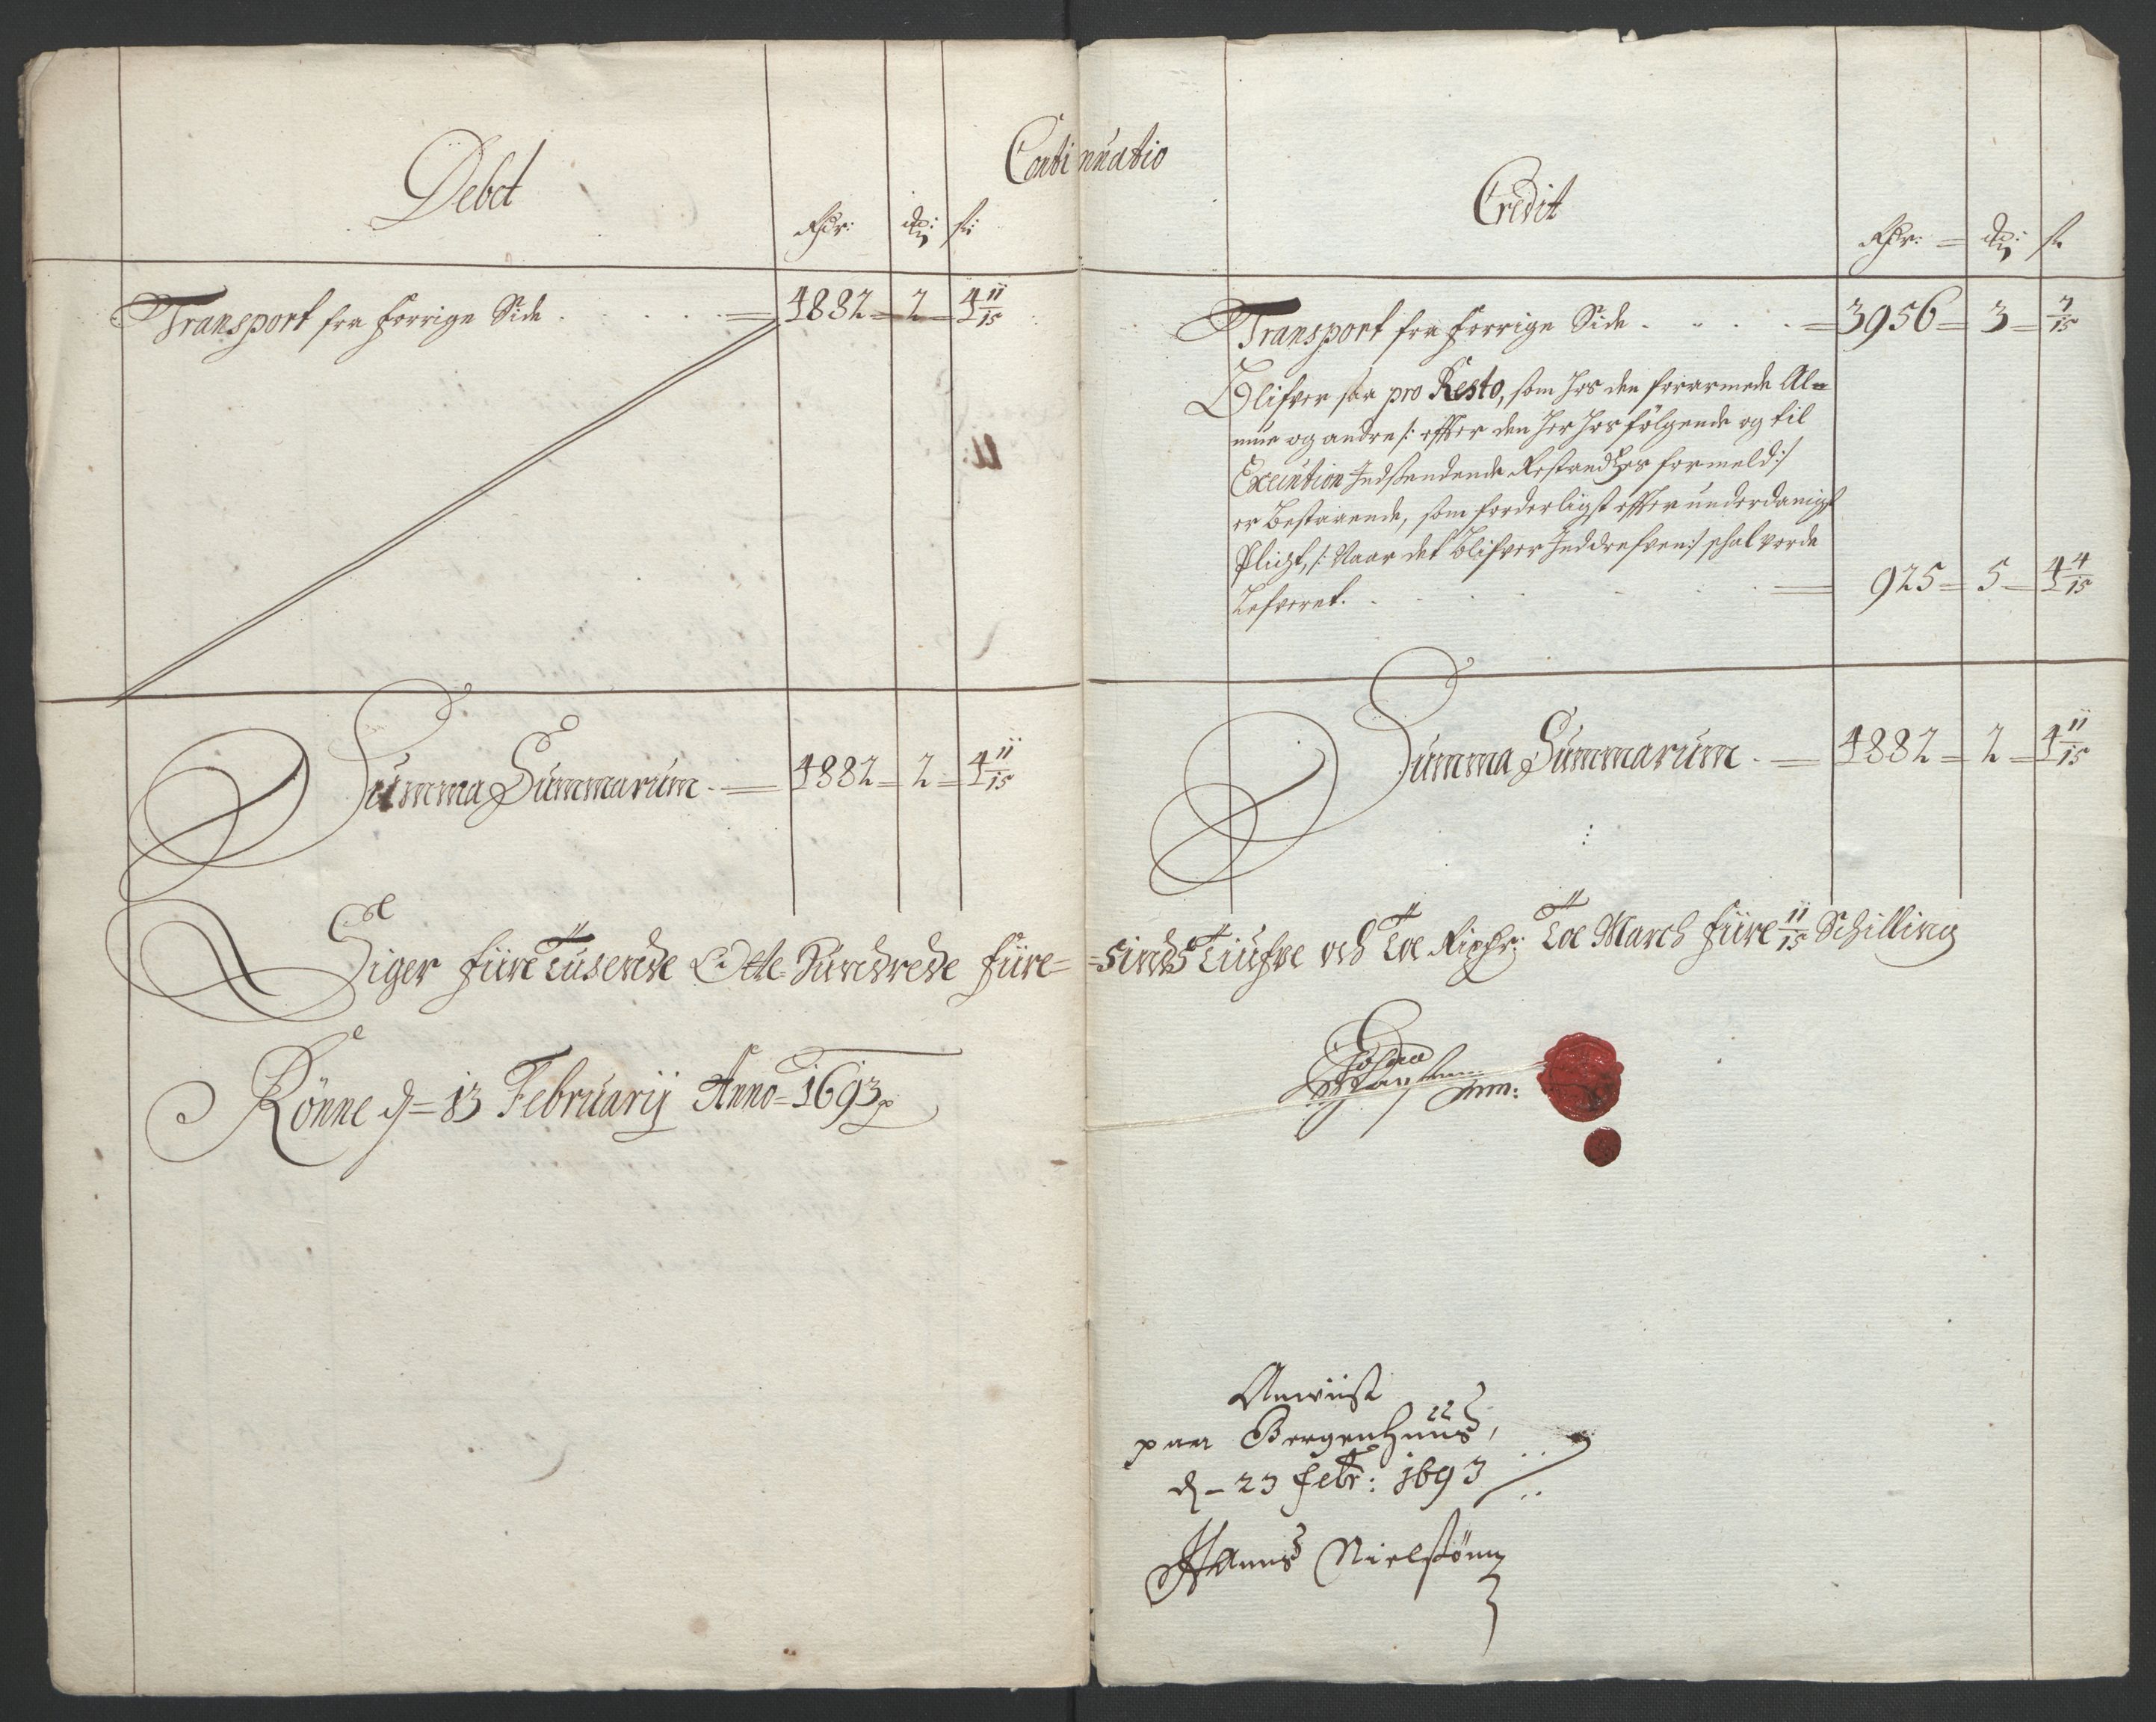 Continuatio
Debet
Rdr: mk: sk:
Transport fra forrige Side . . . . . = 4882 = 2 = 4 11/15
Summa Summarum . = 4882 = 2 = 4 11/15
Credit
Rdr: = mk: sk
Transport fra forrige Side . . . . . = 3956 = 3 = 7/15
Blifver saa pro Resto, som hos den forarmede Al=
mue og andre /: effter den her hos følgende og til
Execution Indsendende Restandz formeld :/
er Bestaaende, som forderligst effter underdanigst
Pligt, /: Naar det blifver Inddrefven :/ schal vorde
Lefveret. . . . . . = 925 = 5 = 4 4/15
Summa Summarum . = 4882 = 2 = 4 11/15
Siger fiire Tusende Otte Hundrede fiire= =sinds Tiufve och Toe Rixdr: Toe March fiire 11/15 Schilling
Rönne d= 13 Februarij Anno 1693
mm:
Anviist
paa Bergenhuus,
d- 23 febr: 1693
Hanns Nielssönn